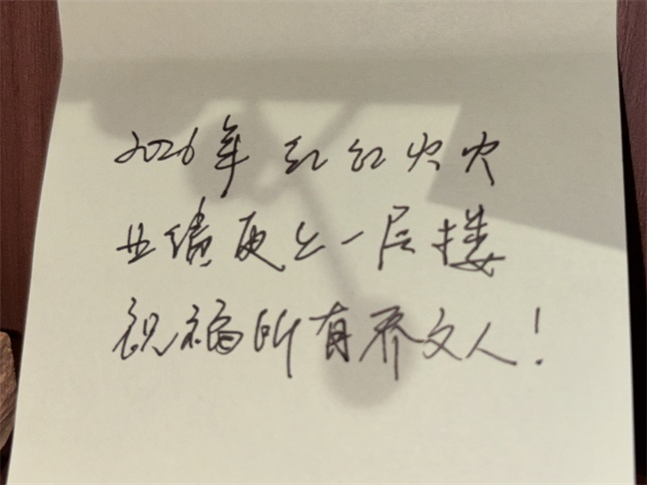 2026年 红红火火
业绩更上一层搂
祝福所有乔文人!